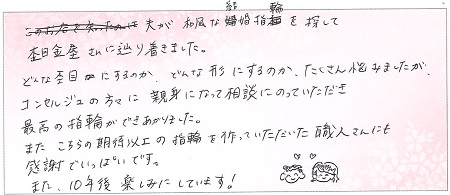 このお店を知ったのは 夫が 和風な 結婚指輪 を 探して
杢目金屋 さんに 辿り着きました。
どんな杢目 にするのか、どんな 形にするのか、たくさん 悩みましたが、
コンセルジュの方々に 親身になって 相談にのっていただき
最高の指輪ができあがりました。
また こちらの期待以上の 指輪を 作っていただいた 職人さんにも
感謝でいっぱいです。
また、10年後 楽しみにしています!